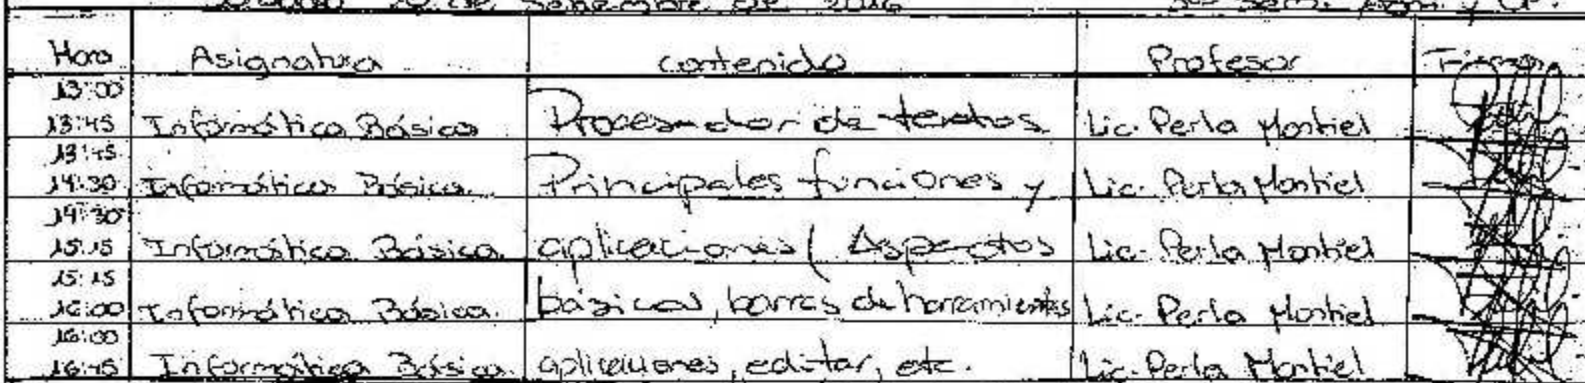 de Septiembre de 2016 3er Sem. Adm. y
Hora Asignatura contenido Profesor Firma
13:00
13:45 Informática Básica Procesador de textos Lic. Perla Montiel
13:45
14:30 Informática Básica Principales funciones y Lic. Perla Montiel
14:30
15:15 Informática Básica aplicaciones ( Aspectos Lic. Perla Montiel
15:15
16:00 Informática Básica básicos, barras de herramientas Lic. Perla Montiel
16:00
16:45 Informática Básica aplicaciones, editar, etc. Lic. Perla Montiel